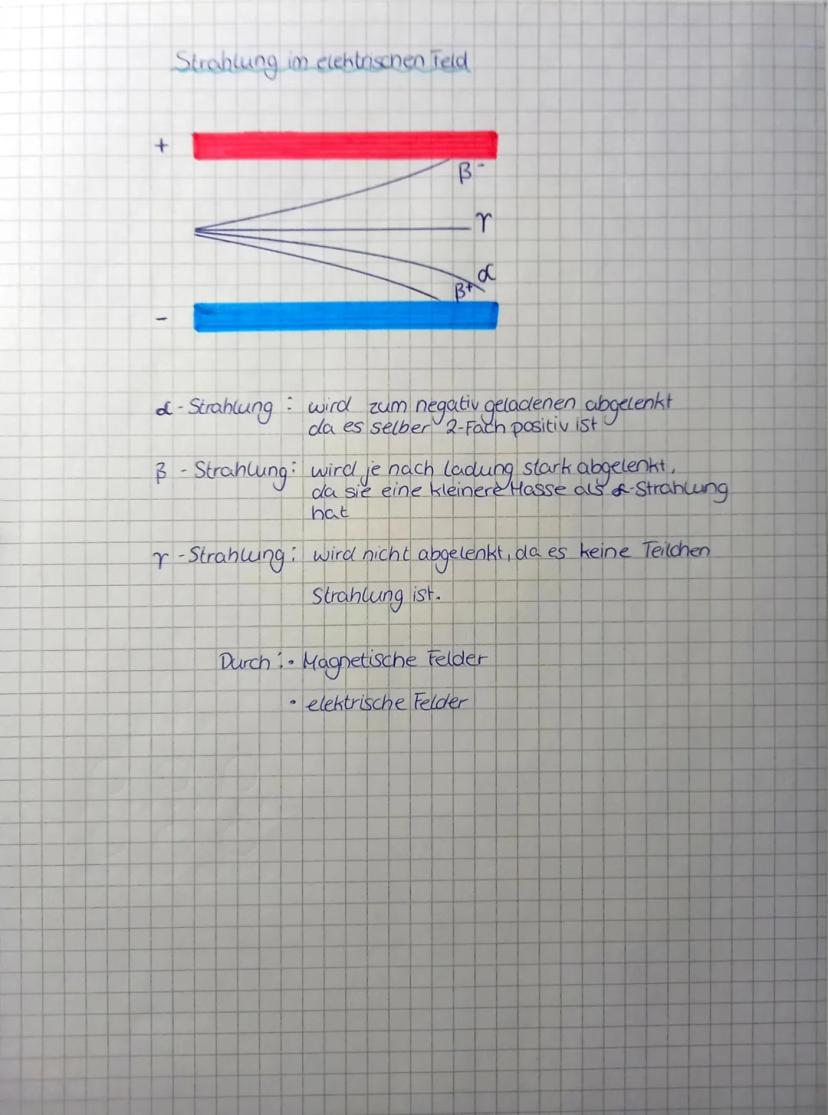 Strahlung im elektrischen Feld
+
β-
γ
α
β+
-
α - Strahlung : wird zum negativ geladenen abgelenkt
da es selber 2-Fach positiv ist
β - Strahlung : wird je nach Ladung stark abgelenkt,
da sie eine kleinere Masse als α-Strahlung
hat
γ - Strahlung : wird nicht abgelenkt, da es keine Teilchen
Strahlung ist.
Durch : • Magnetische Felder
• elektrische Felder